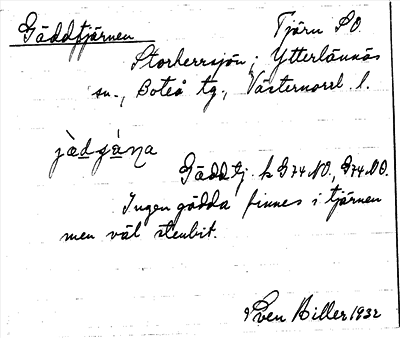 Gäddtjärnen Tjärn SO.
Storherrsjön; Ytterlännäs
sn., Boteå tg., Västernorrl. l.
Gäddtj. k G74NO., G74NO.
Ingen gädda finnes i tjärnen
men väl stenbit.
Sven Hiller 1932